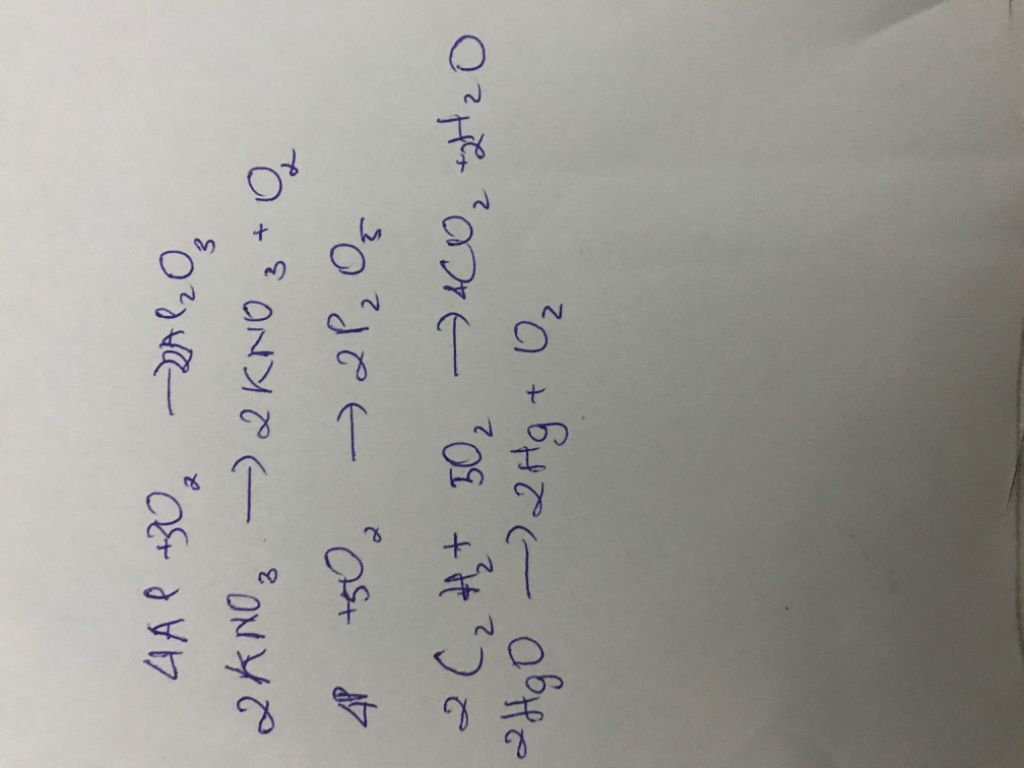 4Al +3O₂ → 2Al₂O₃
2KNO₃ → 2KNO₃ + O₂
4P +5O₂ → 2P₂O₅
2C₂H₂ + 5O₂ → 4CO₂ +2H₂O
2HgO → 2Hg + O₂